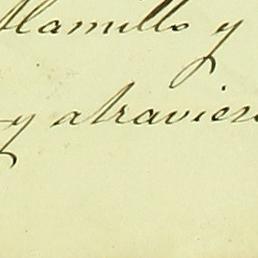 Alamillo y
y atravies